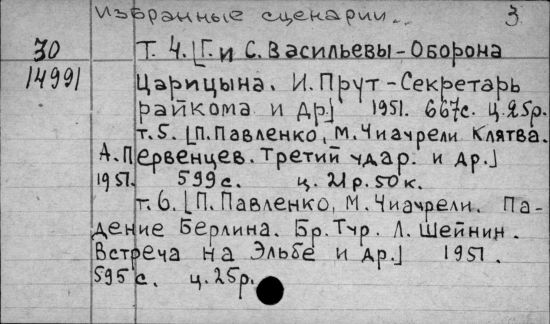 Избранные сценарии.. 3.
30 Т. 4. [Г. и С. Васильевы - Оборона
14991 Царицына. И. Прут - Секретарь
райкома и др.] 1951. 667с. ц. 25р.
т. 5. [П. Павленко, М. Чиаурели Клятва.
А. Первенцев. Третий удар. и др.]
1951. 599 с. ц. 21 р. 50 к.
т. 6. [П. Павленко, М. Чиаурели. Па-
дение Берлина. Бр. Тур. Л. Шейнин.
Встреча на Эльбе и др.] 1951.
595 с. ц. 25р.